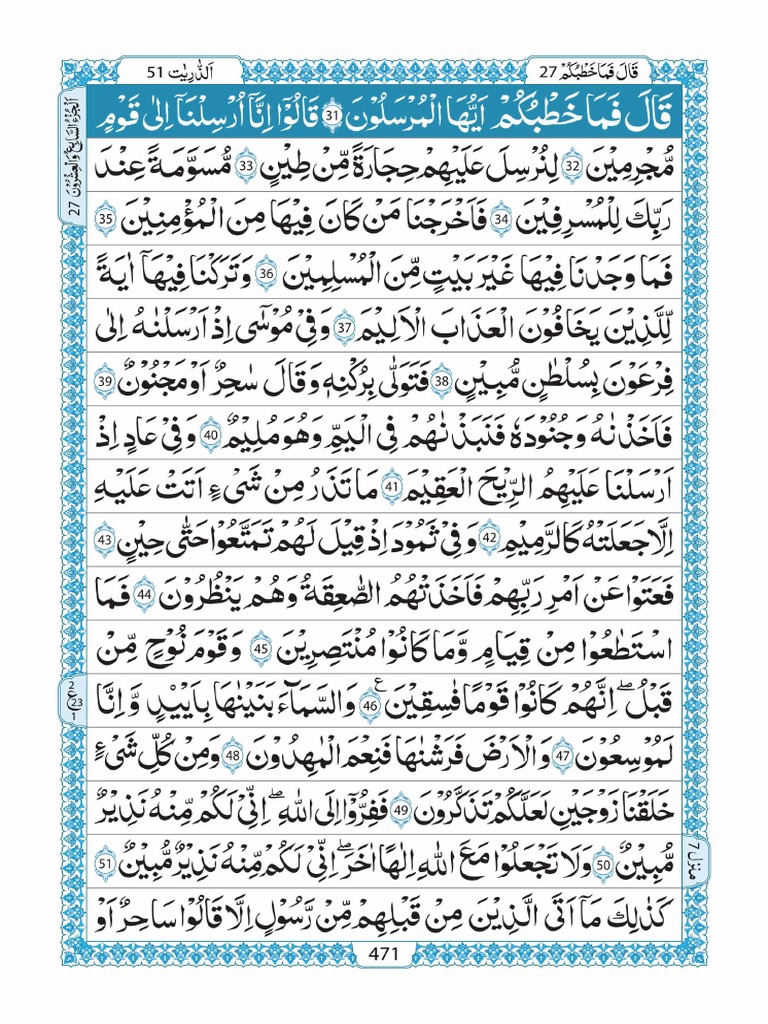 اَلذّٰرِيٰت 51
قَالَ فَمَا خَطْبُكُمْ 27
اَلْجُزْءُ السَّابِعُ وَالْعِشْرُوْنَ 27
قَالَ فَمَا خَطْبُكُمْ اَيُّهَا الْمُرْسَلُوْنَ 31 قَالُوْۤا اِنَّاۤ اُرْسِلْنَاۤ اِلٰى قَوْمٍ
مُّجْرِمِيْنَ 32 لِنُرْسِلَ عَلَيْهِمْ حِجَارَةً مِّنْ طِيْنٍ 33 مُّسَوَّمَةً عِنْدَ
رَبِّكَ لِلْمُسْرِفِيْنَ 34 فَاَخْرَجْنَا مَنْ كَانَ فِيْهَا مِنَ الْمُؤْمِنِيْنَ 35
فَمَا وَجَدْنَا فِيْهَا غَيْرَ بَيْتٍ مِّنَ الْمُسْلِمِيْنَ 36 وَتَرَكْنَا فِيْهَاۤ اٰيَةً
لِّلَّذِيْنَ يَخَافُوْنَ الْعَذَابَ الْاَلِيْمَ 37 وَفِيْ مُوْسٰۤى اِذْ اَرْسَلْنٰهُ اِلٰى
فِرْعَوْنَ بِسُلْطٰنٍ مُّبِيْنٍ 38 فَتَوَلّٰى بِرُكْنِهٖ وَقَالَ سٰحِرٌ اَوْ مَجْنُوْنٌ 39
فَاَخَذْنٰهُ وَجُنُوْدَهٗ فَنَبَذْنٰهُمْ فِى الْيَمِّ وَهُوَ مُلِيْمٌ 40 وَفِيْ عَادٍ اِذْ
اَرْسَلْنَا عَلَيْهِمُ الرِّيْحَ الْعَقِيْمَ 41 مَا تَذَرُ مِنْ شَىْءٍ اَتَتْ عَلَيْهِ
اِلَّا جَعَلَتْهُ كَالرَّمِيْمِ 42 وَفِيْ ثَمُوْدَ اِذْ قِيْلَ لَهُمْ تَمَتَّعُوْا حَتّٰى حِيْنٍ 43
فَعَتَوْا عَنْ اَمْرِ رَبِّهِمْ فَاَخَذَتْهُمُ الصّٰعِقَةُ وَهُمْ يَنْظُرُوْنَ 44 فَمَا
اسْتَطٰعُوْا مِنْ قِيَامٍ وَّمَا كَانُوْا مُنْتَصِرِيْنَ 45 وَقَوْمَ نُوْحٍ مِّنْ
قَبْلُ ؕ اِنَّهُمْ كَانُوْا قَوْمًا فٰسِقِيْنَ 46 ع وَالسَّمَآءَ بَنَيْنٰهَا بِاَيْىدٍ وَّاِنَّا
2 ع 23 1
لَمُوْسِعُوْنَ 47 وَالْاَرْضَ فَرَشْنٰهَا فَنِعْمَ الْمٰهِدُوْنَ 48 وَمِنْ كُلِّ شَىْءٍ
خَلَقْنَا زَوْجَيْنِ لَعَلَّكُمْ تَذَكَّرُوْنَ 49 فَفِرُّوْۤا اِلَى اللّٰهِ ؕ اِنِّيْ لَكُمْ مِّنْهُ نَذِيْرٌ
مُّبِيْنٌ 50 وَلَا تَجْعَلُوْا مَعَ اللّٰهِ اِلٰهًا اٰخَرَ ؕ اِنِّيْ لَكُمْ مِّنْهُ نَذِيْرٌ مُّبِيْنٌ 51
منزل 7
كَذٰلِكَ مَاۤ اَتَى الَّذِيْنَ مِنْ قَبْلِهِمْ مِّنْ رَّسُوْلٍ اِلَّا قَالُوْا سَاحِرٌ اَوْ
471